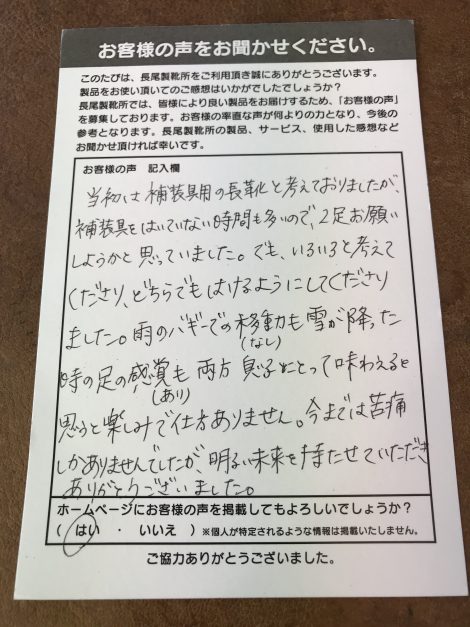 お客様の声をお聞かせください。
このたびは、長尾製靴所をご利用頂き誠にありがとうございます。
製品をお使い頂いてのご感想はいかがでしたでしょうか？
長尾製靴所では、皆様により良い製品をお届けするため、「お客様の声」
を募集しております。お客様の率直な声が何よりの力となり、今後の
参考となります。長尾製靴所の製品、サービス、使用した感想など
お聞かせ頂ければ幸いです。
お客様の声　記入欄
当初は補装具用の長靴と考えておりましたが、
補装具をはいていない時間も多いので、2足お願い
しようかと思っていました。でも、いろいろと考えて
くださり、どちらでもはけるようにしてくださり
ました。雨のバギーでの移動も雪が降った
(なし)
時の足の感覚も両方息子にとって味わえると
(あり)
思うと楽しみで仕方ありません。今までは苦痛
しかありませんでしたが、明るい未来を持たせていただき
ありがとうございました。
ホームページにお客様の声を掲載してもよろしいでしょうか？
（ はい ・ いいえ ）※個人が特定されるような情報は掲載いたしません。
ご協力ありがとうございました。